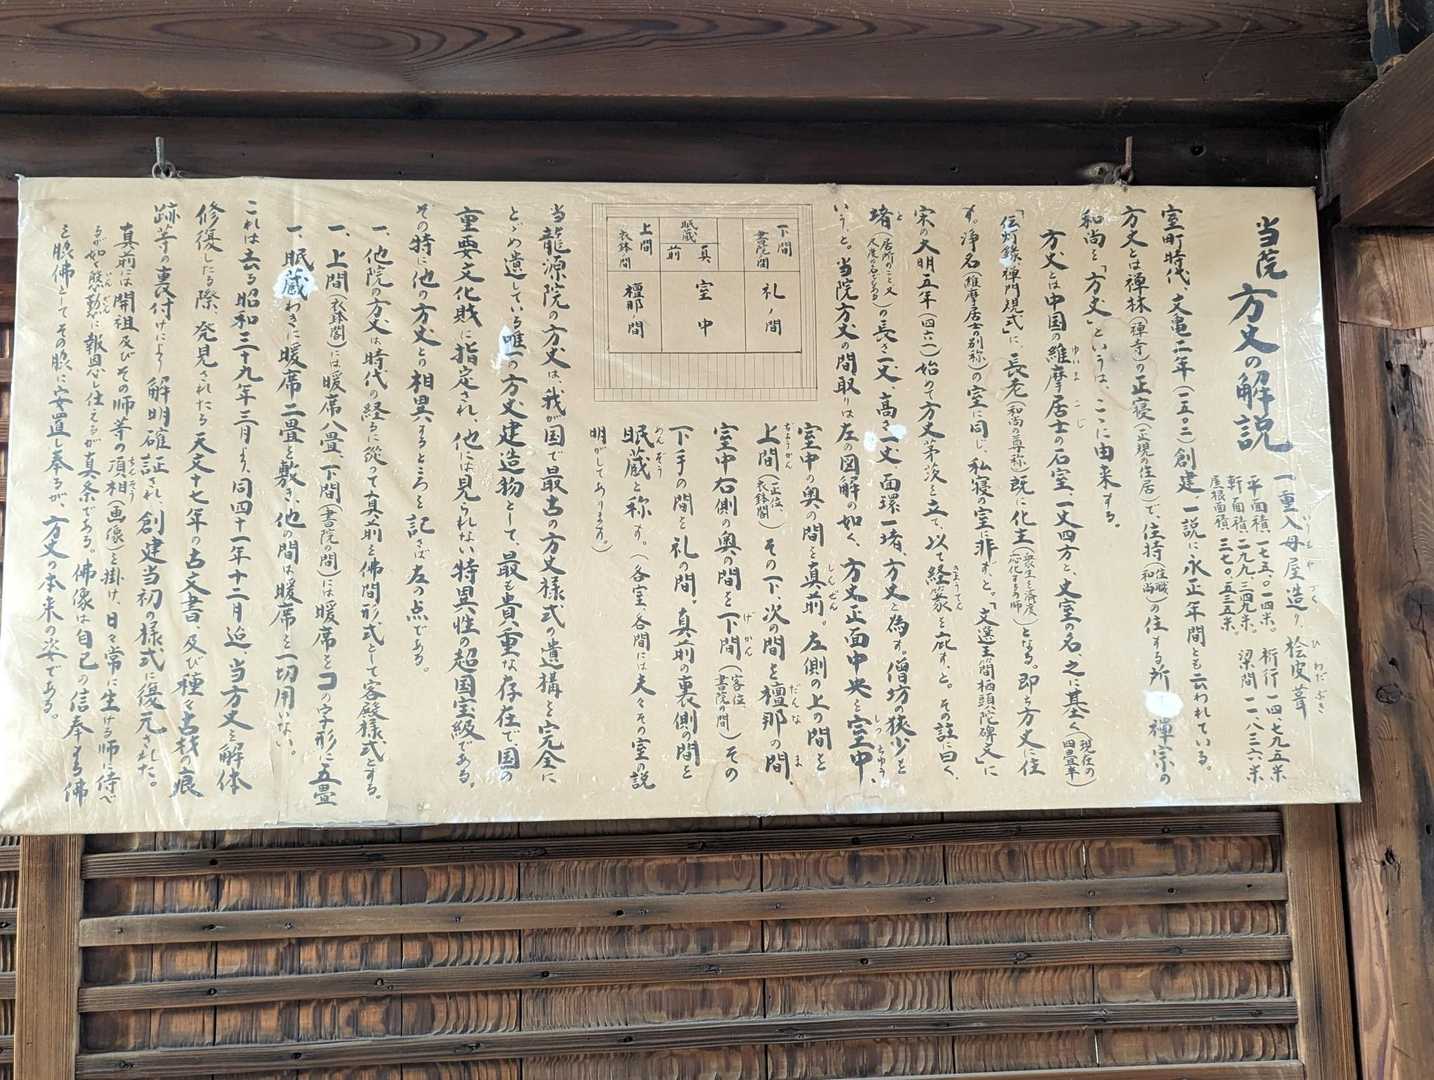 当院 方丈の解説
一重入母屋造り 桧皮葺
いりもやづくり ひわだぶき
平面積、一七五.〇一四米。 桁行 一四、七九五米
軒面積、二九九、三四九米。 梁間 一一、八三六米
屋根面積、三七〇、五三五米。
室町時代、文亀二年(一五〇二)創建 一説に永正年間とも云われている。
方丈とは禅林(禅寺)の正寝(正規の住居)で、住持(住職)(和尚)の住する所、禅宗の
和尚を「方丈」というは、ここに由来する。
方丈とは中国の維摩居士の石室、一丈四方を、丈室の名、之に基く(現在の四畳半)
ゆいま こじ
「伝灯録、禅門規式」に、長老(和尚の尊称)既に化主(衆生を済度応化するの師)となる。即ち方丈に住
す。浄名(維摩居士の別称)の室に同じ、私寝の室に非ずと。「文選王簡栖頭陀碑文」に
宋の大明五年(四六一)始めて方丈茅茨を立て、以て経篆を庇すと。その註に曰く、
堵(居所のこと又尺度の名でもある)の長さ一丈、高さ一丈、面環一堵、方丈と為す。僧坊の狭少を
と
いうと。当院方丈の間取りは左の図解の如く、方丈正面中央を室中、
しつちゅう
室中の奥の間を真前。左側の上の間を
しんぜん
上間(正位)(衣鉢閣) その下、次の間を檀那の間、
じょうかん だんなま
室中右側の奥の間を下間(客位)(書院の間) その
げかん
下の手の間を礼の間。真前の裏側の間を
眠蔵と称す。(各室各間には夫々その室の説
めんぞう
明がしてあります。)
下間 書院間
礼ノ間
眠蔵
真前
室中
上間 衣鉢間
檀那ノ間
当龍源院の方丈は、我が国で最古の方丈様式の遺構を完全に
とどめ遺している唯一の方丈建造物として、最も貴重な存在で国の
重要文化財に指定され、他には見られない特異性の超国宝級である。
その特に他の方丈との相異するところを記さば左の点である。
一、他院の方丈は時代の経るに従って真前を佛間形式として客殿様式とする。
一、上間(衣鉢閣)には暖席八畳、下間(書院の間)には暖席をコの字形に五畳
一、眠蔵わきに暖席二畳を敷き、他の間は暖席を一切用いない。
これは去る昭和三十九年三月より、同四十一年十二月迄、当方丈を解体
修復したる際、発見されたる天文十七年の古文書、及び種々古材の痕
跡等の裏付けにより 解明確証され、創建当初の様式に復元された。
真前は開祖及びその師等の頂相(画像)を掛け、日々常に生ける師に侍べ
ちんそう
るが如く慇懃に報恩し仕えるが真条である。佛像は自己の信奉する佛
いんぎん
を脇佛としてその脇に安置し奉るが、方丈の本来の姿である。